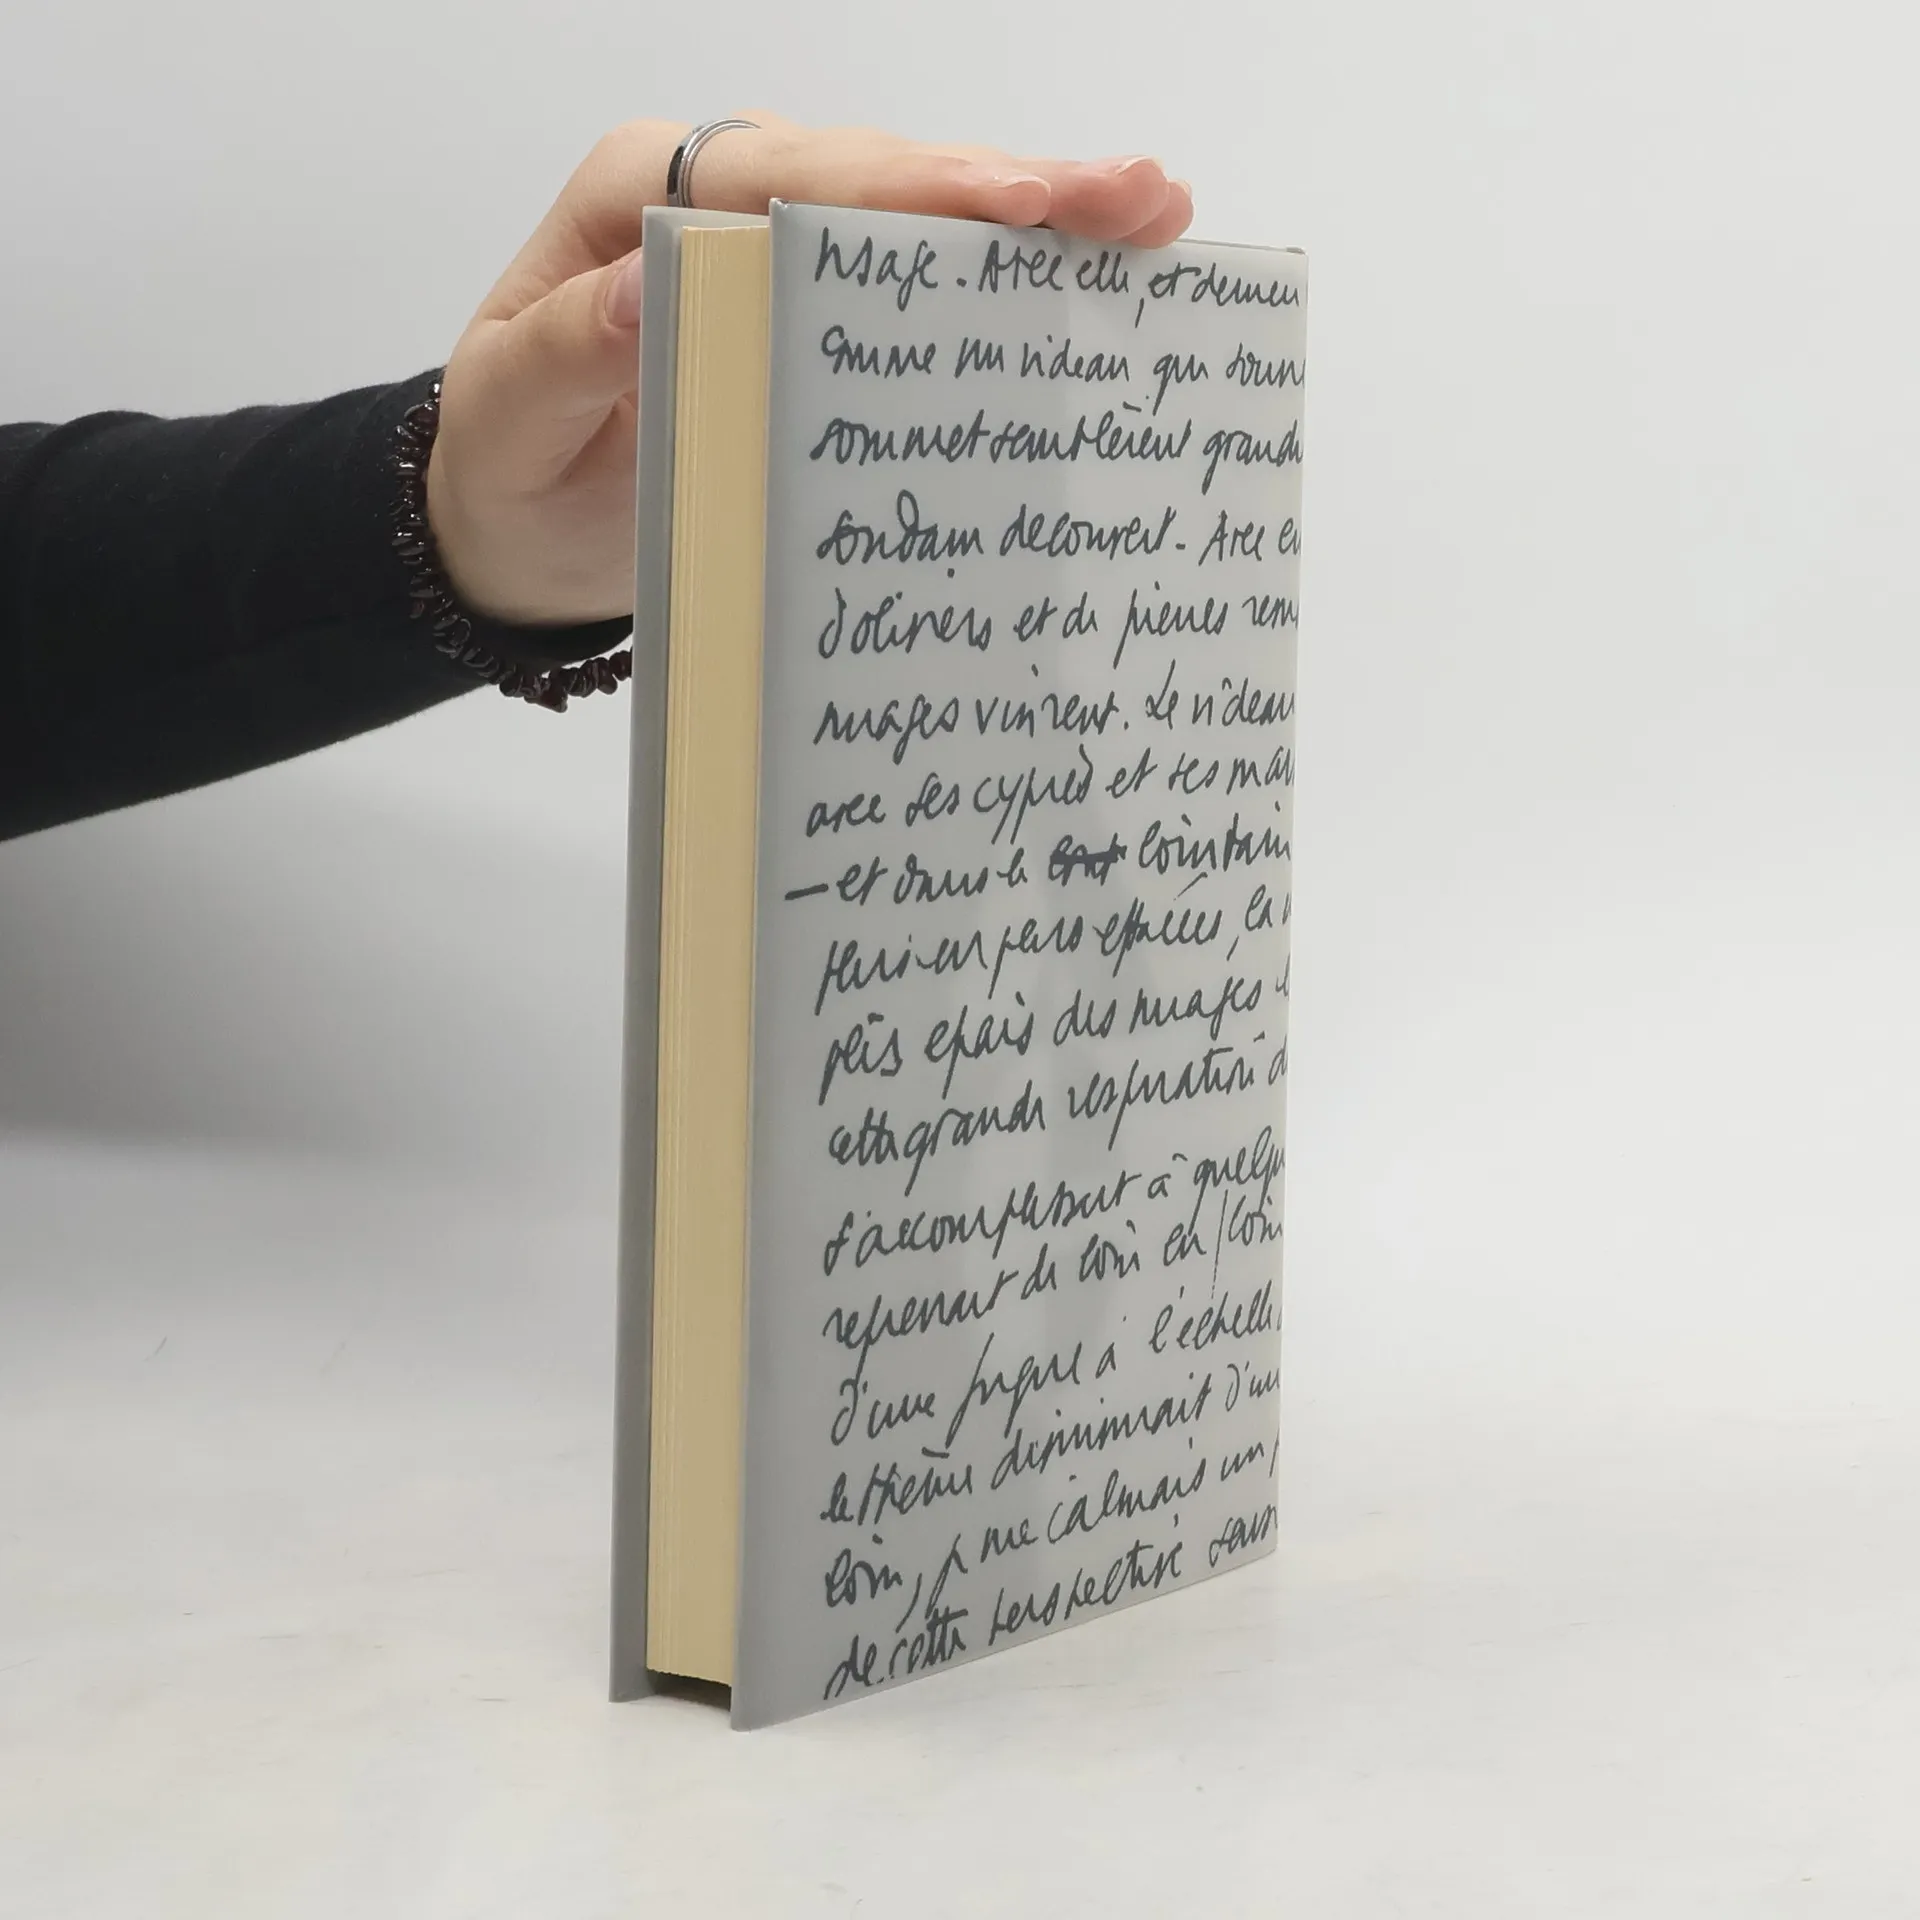 visage. Avec elle, et derriè
comme un rideau qui s'ouvr
sommet semblèrent grandi
soudain découvert. Avec eu
d'oliviers et de pierres rem
nuages vinrent. Le rideau
avec ses cyprès et ses mai
— et dans le lointain
plus en plus effacées, la
plis épais des nuages l
cette grande respiration d
s'accomplissait à quelqu
reprenait de loin en loin
d'une fugue à l'échelle
le thème diminuait d'un
loin, je me calmais un p
de cette perspective sens